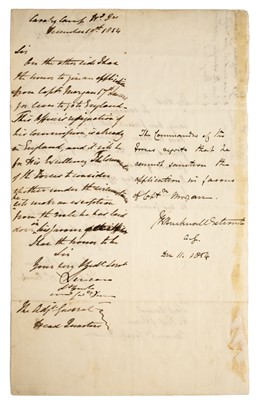 Cavalry Camp
December 1854
Sir
On the other side I have
the honor to give an application
from Captn Morgan 17th Lancers
for leave to go to England.
This Officer's resignation of
his Commission is already
in England, and it will be
for His Excellency
of the Forces to consider
whether under the circumstances
he will make an exception
from the rule he has laid
down in his favour
I have the honor to be
Sir
Your very Obedt Servt
Lucan
The Adjt General
Head Quarters
The Commander of the
Forces regrets that he
cannot sanction the
application in favour
of Captn Morgan.
J Bucknall Estcourt
A.G.
Dec 11. 1854